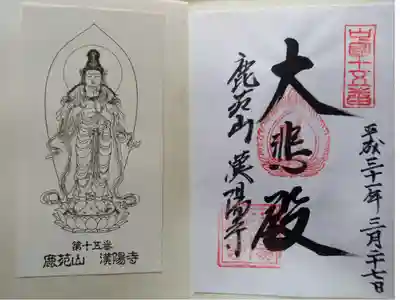 第十五番
鹿苑山 漢陽寺
平成三十一年 三月二十七日
大悲殿
鹿苑山 漢陽寺